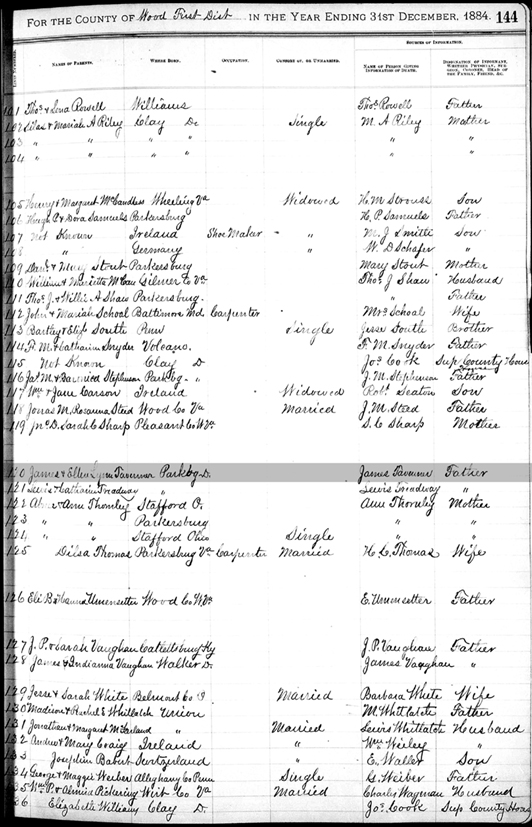 FOR THE COUNTY OF Wood First Dist IN THE YEAR ENDING 31ST DECEMBER, 1884. 144
SOURCES OF INFORMATION.
NAMES OF PARENTS. WHERE BORN. OCCUPATION. CONSORT OF, OR UNMARRIED. NAME OF PERSON GIVING INFORMATION OF DEATH. DESIGNATION OF INFORMANT, WHETHER PHYSICIAN, SURGEON, CORONER, HEAD OF THE FAMILY, FRIEND, &C.
101 Thos & Lena Rowell Williams Thos Rowell Father
102 Silas & Mariah A Riley Clay D. Single M. A Riley Mother
103 " " " " "
104 " " " " "
105 Henry & Margaret McCandless Wheeling Va Widowed H. M Strouss Son
106 Hugh P & Dora Samuels Parkersburg H. P. Samuels Father
107 Not Known Ireland Shoe Maker " M. J Smith Son
108 " Germany " W. D Schafer "
109 Danl & Mary Stout Parkersburg Mary Stout Mother
110 William & Marietta Gilmer Co Va Thos J Shaw Husband
111 Thos J. & Willie A Shaw Parkersburg. " Father
112 John & Mariah School Baltimore Md Carpenter Mrs School Wife
113 Bartley & Eliz South Penn Single Jesse South Brother
114 F. M. & Catharine Snyder Volcano. F. M. Snyder Father
115 Not Known Clay D Jos Cook Sup County
116 Jas M. & Stephenson Parkbg. " J. M. Stephenson Father
117 Wm & Jane Carson Ireland Widowed Robt Seaton Son
118 Jonas M. Rosanna Steed Wood Co Va Married J. M. Steed Father
119 Jno D. Sarah C Sharp Pleasant Co W.Va S. C Sharp Mother
120 James & Ellen Lynn Tavenner Parkbg D. James Tavenner Father
121 Lewis & Catharine Treadway " Lewis Treadway "
122 & Ann Thornley Stafford O. Ann Thornley Mother
123 " " Parkersburg " "
124 " " Stafford Ohio Single " "
125 Dilsa Thomas Parkersburg Va Carpenter Married H. L. Thomas Wife
126 Eli B & Hanna Umensetter Wood Co W.Va E. Umensetter Father
127 J. P. & Sarah Vaughan Catlettsburg Ky J. P. Vaughan Father
128 James & Indianna Vaughan Walker D. James Vaughan "
129 Jesse & Sarah White Belmont Co O Married Barbara White Wife
130 Madison & Rachel E Whitlatch Union M. Whitlatch Father
131 Jonathan & Margaret McFarland " Married Lewis Whitlatch Husband
132 Andrew & Mary Craig Ireland " Wm "
133 Josephin Switzerland " E. Waller Son
134 George & Maggie Weeber Alleghany Co Penn Single G. Weiber Father
135 Wm P. & Almira Pickering Wirt Co Va Married Charles Wayman Husband
136 Elizabeth Williams Clay D. Jos. Cook Sup County House